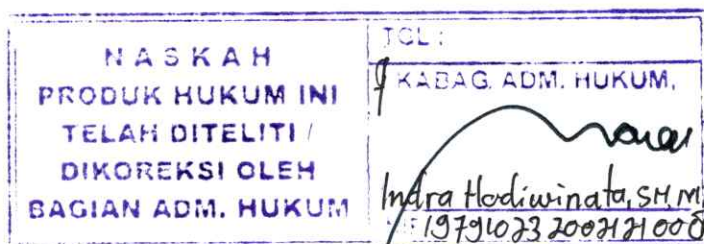 NASKAH
PRODUK HUKUM INI
TELAH DITELITI /
DIKOREKSI OLEH
BAGIAN ADM. HUKUM
TGL :
KABAG. ADM. HUKUM,
Indra Hadiwinata, SH.M